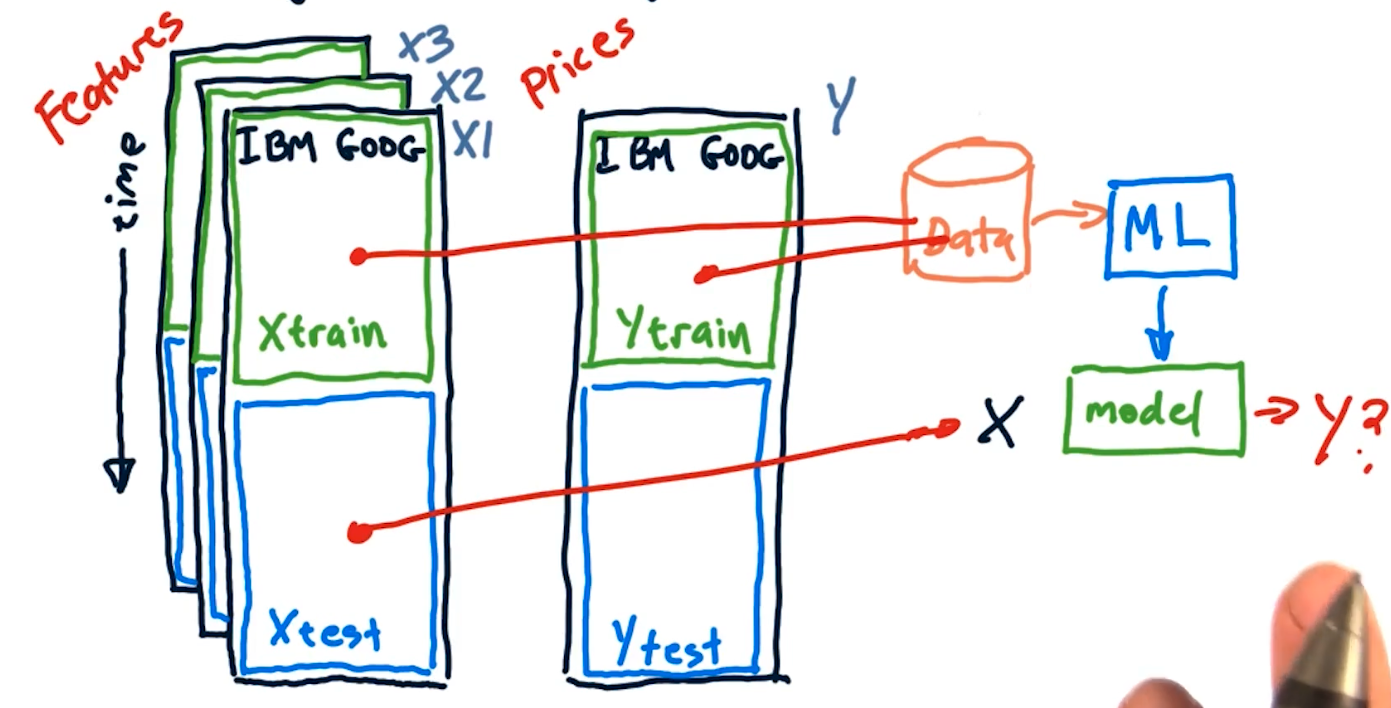 Features
time
X3
X2
X1
IBM GOOG
Xtrain
Xtest
Prices
Y
IBM GOOG
Ytrain
Ytest
Data
ML
X
model
Y?